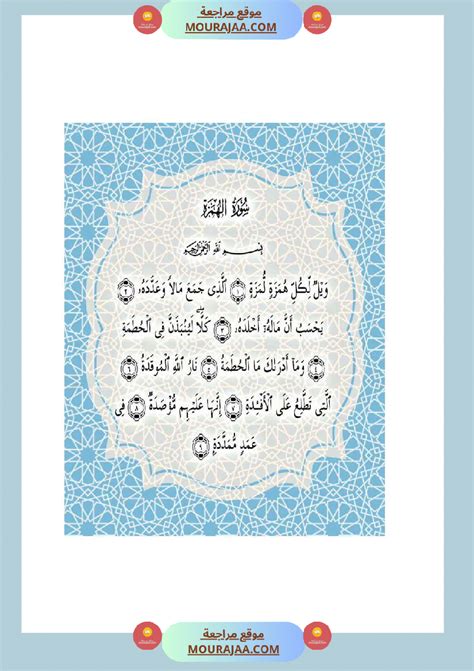 موقع مراجعة
MOURAJAA.COM
سُورَةُ الهُمَزَةِ
بِسْمِ اللَّهِ الرَّحْمَٰنِ الرَّحِيمِ
وَيْلٌ لِّكُلِّ هُمَزَةٍ لُّمَزَةٍ ١ ٱلَّذِى جَمَعَ مَالًا وَعَدَّدَهُۥ ٢
يَحْسَبُ أَنَّ مَالَهُۥٓ أَخْلَدَهُۥ ٣ كَلَّا ۖ لَيُنۢبَذَنَّ فِى ٱلْحُطَمَةِ
٤ وَمَآ أَدْرَىٰكَ مَا ٱلْحُطَمَةُ ٥ نَارُ ٱللَّهِ ٱلْمُوقَدَةُ ٦
ٱلَّتِى تَطَّلِعُ عَلَى ٱلْأَفْـِٔدَةِ ٧ إِنَّهَا عَلَيْهِم مُّؤْصَدَةٌ ٨ فِى
عَمَدٍ مُّمَدَّدَةٍۭ ٩
موقع مراجعة
MOURAJAA.COM